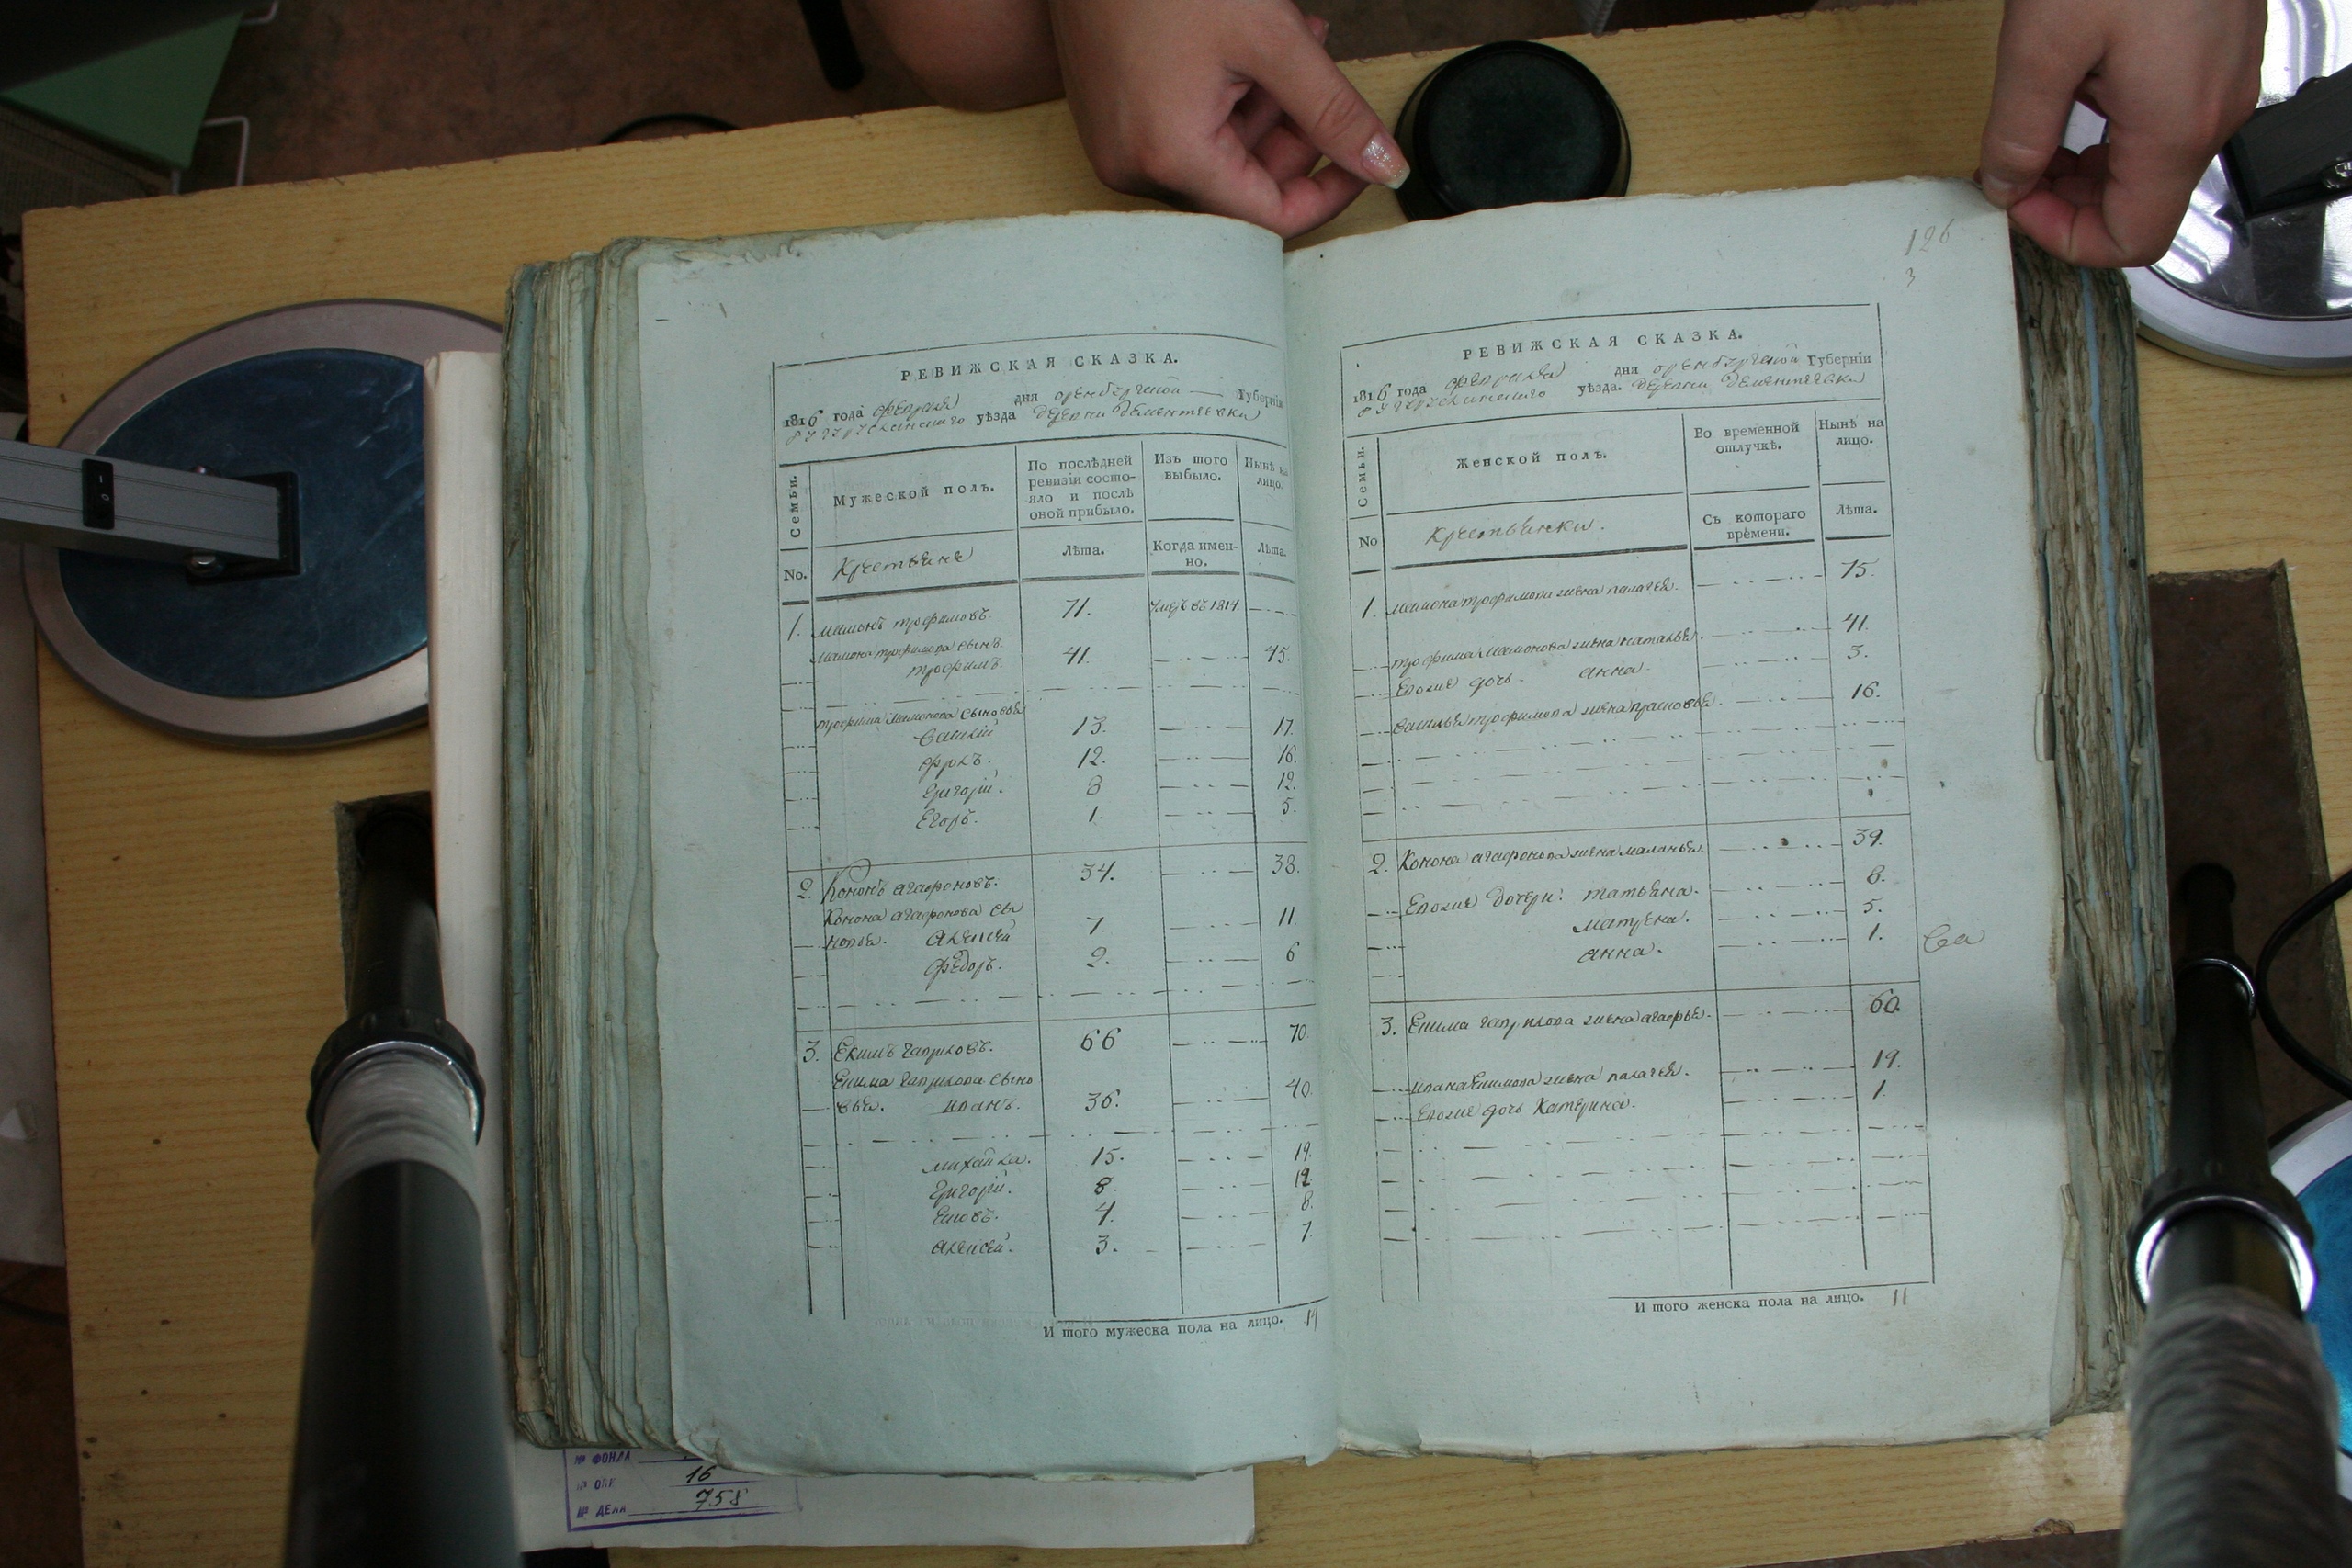 РЕВИЖСКАЯ СКАЗКА.
1816 года февраля дня оренбургской Губерніи
бугурусланскаго уѣзда деревни Дементѣевки
Семьи.
Мужеской полъ.
По послѣдней ревизіи состо-
яло и послѣ
оной прибыло.
Изъ того
выбыло.
Нынѣ на
лицо.
No.
Крестьяне
Лѣта.
Когда имен-
но.
Лѣта.
1. мамонъ трофимовъ. 71. умре въ 1814
мамона трофимова сынъ
трофимъ. 41. 45.
трофима мамонова сыновья
Василей 13. 17.
фролъ. 12. 16.
Григорій. 8 12.
Егоръ. 1. 5.
2. Кононъ агафоновъ. 34. 38.
Конона агафонова сы
новья. алексей 7. 11.
федоръ. 2. 6
3. Екимъ гавриловъ. 66 70.
Екима гаврилова сыно
вья. иванъ. 36. 40.
михайла. 15. 19.
Григорій. 8. 12
4. 8.
алексей. 3. 7.
И того мужеска пола на лицо. 14
126
3
РЕВИЖСКАЯ СКАЗКА.
1816 года февраля дня оренбургской Губерніи
бугурусланскаго уѣзда. деревни Дементѣевки
Семьи.
Женской полъ.
Во временной
отлучкѣ.
Нынѣ на
лицо.
No
Крестьянки.
Съ котораго
времени.
Лѣта.
1. мамона трофимова жена палагея. 75.
трофима мамонова жена наталья. 41.
Евоже дочь анна. 5.
василья трофимова жена прасковья. 16.
2. Конона агафонова жена маланья. 39.
Евоже дочери: татьяна. 8.
матрена. 5.
анна. 1.
3. Екима гаврилова жена агафья. 60.
ивана Екимова жена палагея. 19.
Евоже дочь Катерина. 1.
И того женска пола на лицо. 11
№ ФОНДА
№ ОПИ 16
№ ДЕЛА 758